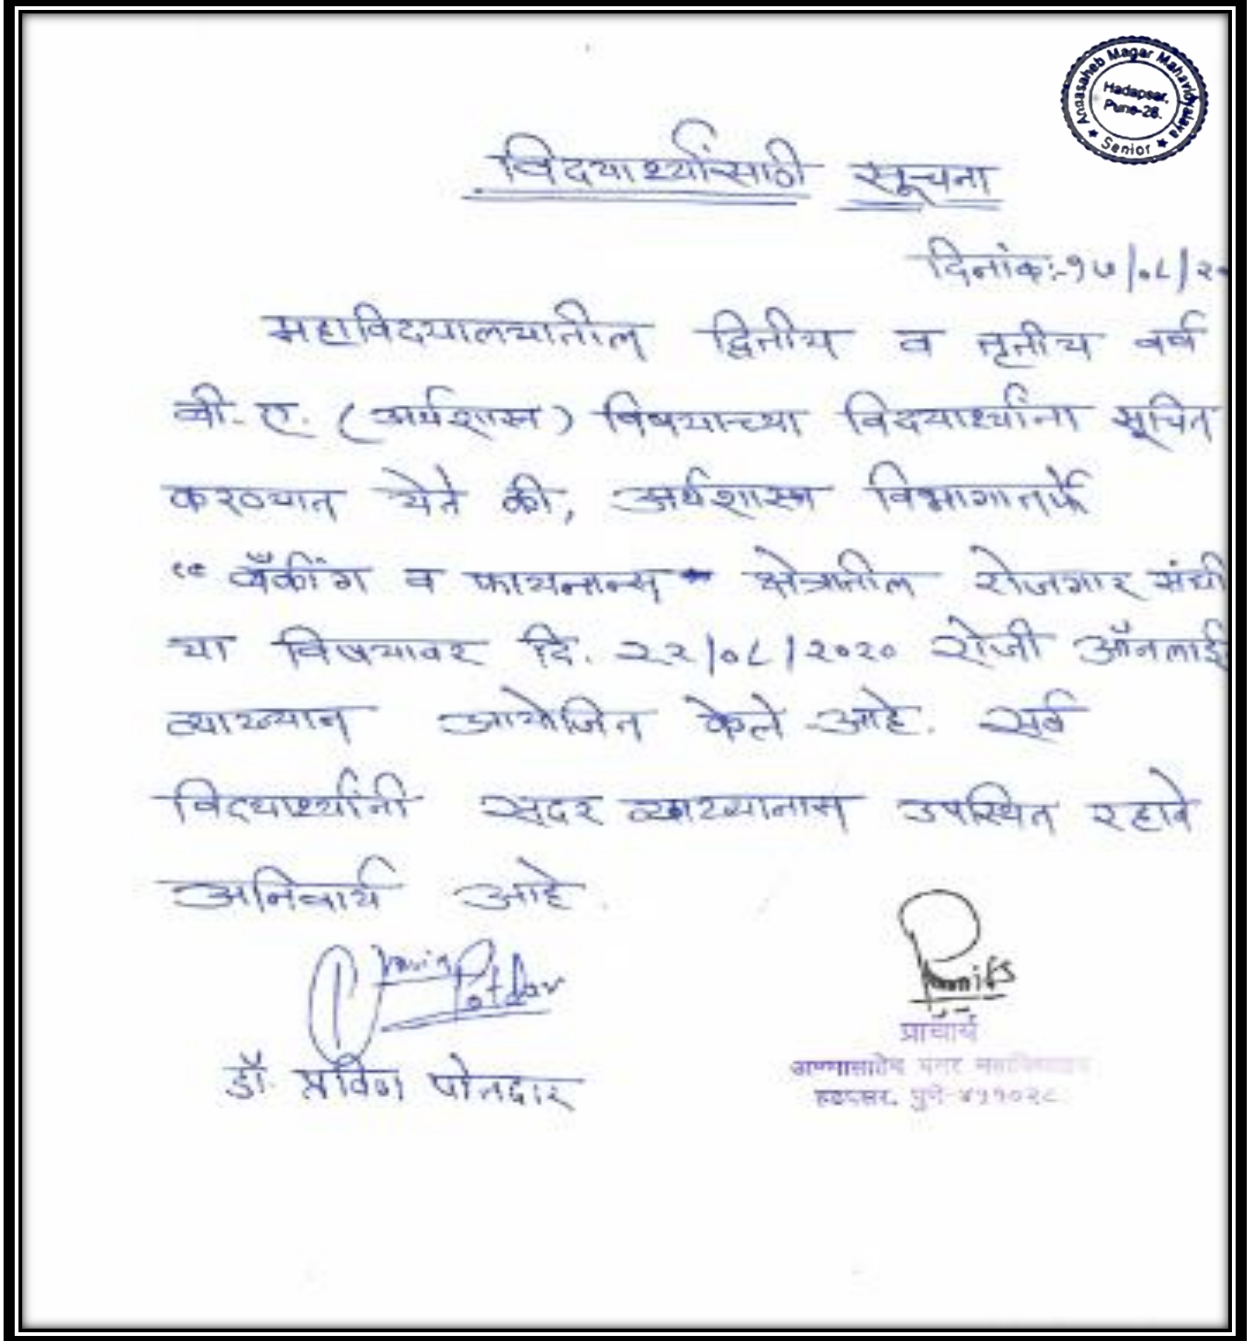 Annasaheb Magar Mahavidyalaya
Hadapsar,
Pune-28.
★ Senior ★
विदयार्थ्यांसाठी सूचना
दिनांक:-१७/०८/२०
महाविदयालयातील द्वितीय व तृतीय वर्ष
बी.ए. (अर्थशास्त्र) विषयाच्या विदयार्थ्यांना सूचित
करण्यात येते की, अर्थशास्त्र विभागातर्फे
"बँकींग व फायनान्स क्षेत्रातील रोजगार संधी
या विषयावर दि. २२/०८/२०२० रोजी ऑनलाई
व्याख्यान आयोजित केले आहे. सर्व
विदयार्थ्यांनी सदर व्याख्यानास उपस्थित रहावे
अनिवार्य आहे.
Pravin Potdar
डॉ. प्रविण पोतदार
प्राचार्य
अण्णासाहेब मगर महाविद्यालय
हडपसर, पुणे-४११०२८